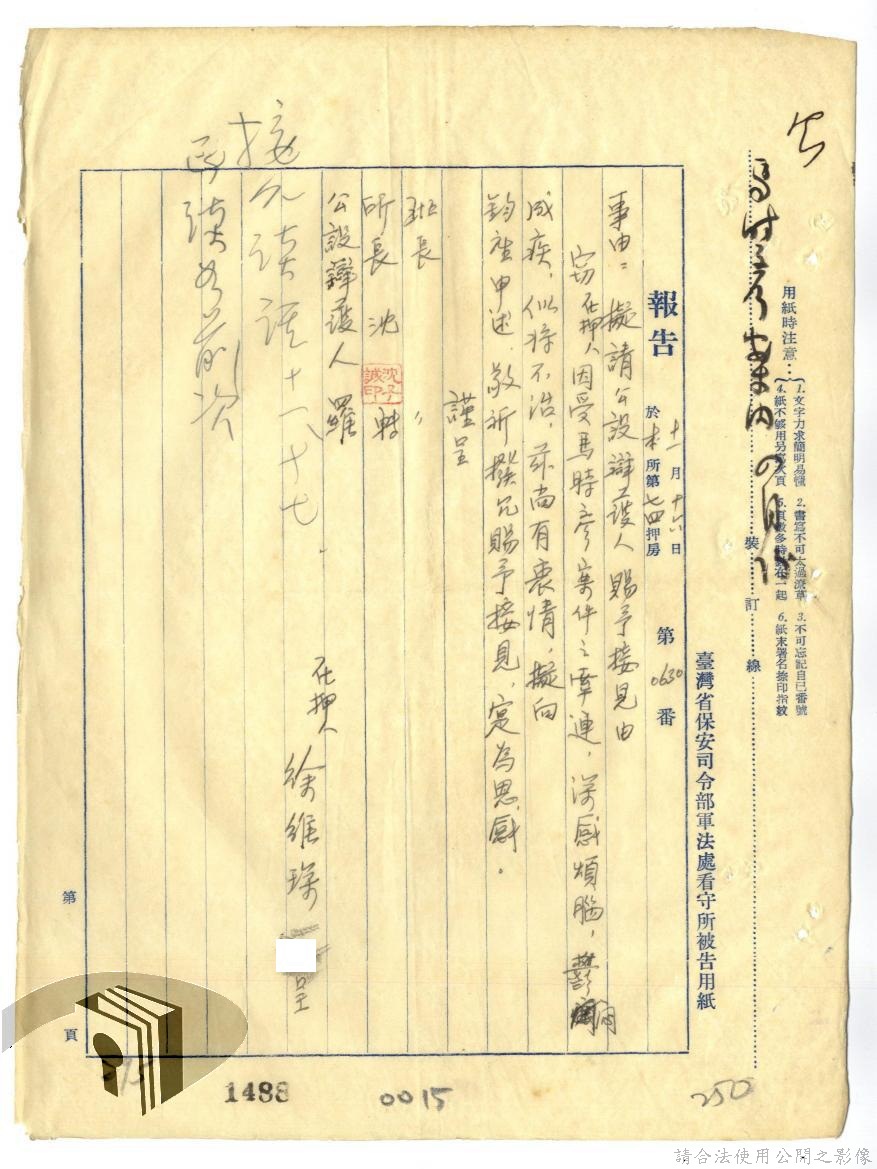 馬時彥案內
用紙時注意：
1.文字力求簡明易懂 2.書寫不可太過潦草 3.不可忘記自己番號
4.紙不够用另寫次頁 5.頁數多時訂在一起 6.紙末署名捺印指紋
裝 訂 線
臺灣省保安司令部軍法處看守所被告用紙
報告 十一月十六日
於本所第七四押房
第0630番
事由：擬請公設辯護人賜予接見由
窃在押人因受馬時彥案件之牽連，深感煩腦，鬱悶
成疾，似將不治，茲尚有衷情，擬向
鈞座申述，敬祈撥冗賜予接見，寔為恩感。
謹呈
班長
所長 沈 轉
沈子誠印
公設辯護人 羅
在押人 徐維琛 呈
接見談話 十一、十七、
所談如前次
第 頁
1488
0015
250
請合法使用公開之影像